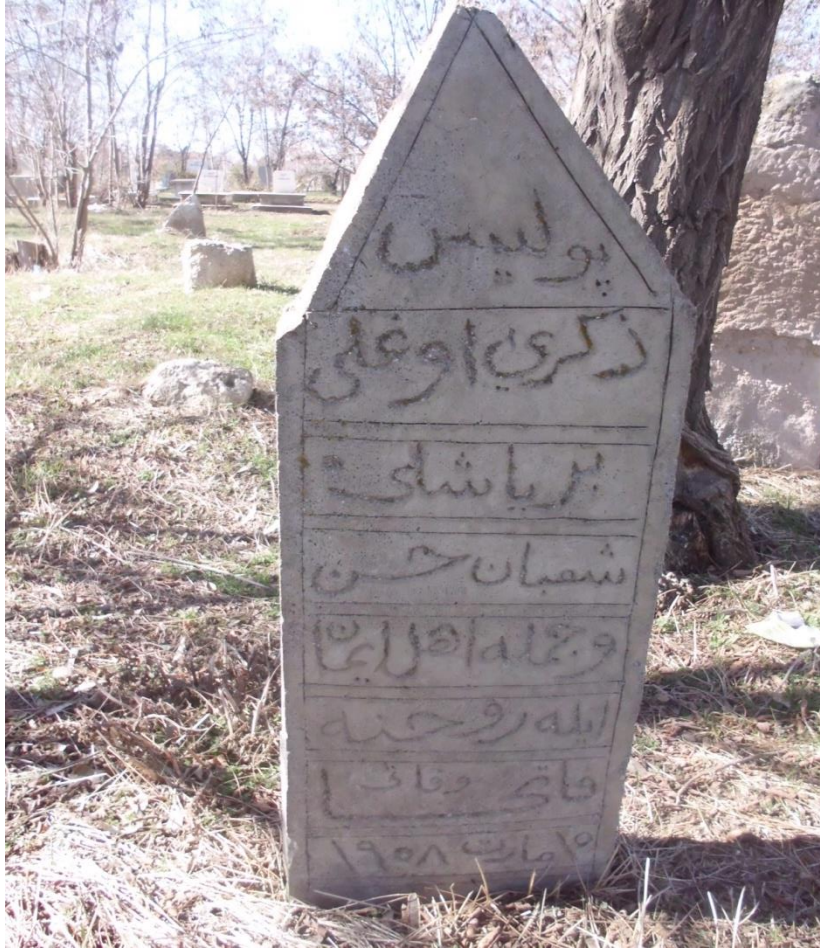 پوليس
ذكري اوغلى
بر ياشلى
شعبان حسن
و جمله اهل ايمان
ايله روحنه
فاتحا وفاتى
١٥ مارت ١٩٥٨